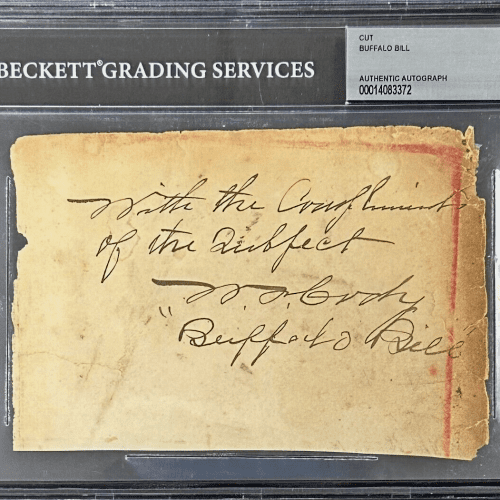 BECKETT® GRADING SERVICES
CUT
BUFFALO BILL
AUTHENTIC AUTOGRAPH
00014083372
With the Compliments
of the Subject
W. F. Cody
"Buffalo Bill"